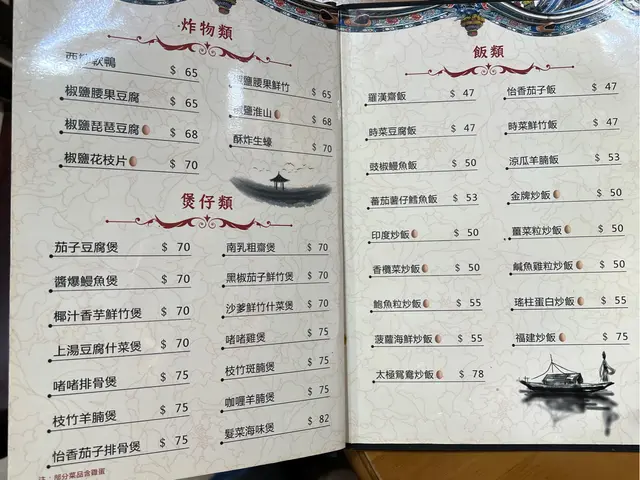 炸物類
西檸軟鴨 $ 65
椒鹽腰果豆腐 $ 65
椒鹽琵琶豆腐 $ 68
椒鹽花枝片 $ 70
椒鹽腰果鮮竹 $ 65
椒鹽淮山 $ 68
酥炸生蠔 $ 70
煲仔類
茄子豆腐煲 $ 70
醬爆鰻魚煲 $ 70
椰汁香芋鮮竹煲 $ 70
上湯豆腐什菜煲 $ 70
啫啫排骨煲 $ 75
枝竹羊腩煲 $ 75
怡香茄子排骨煲 $ 75
南乳粗齋煲 $ 70
黑椒茄子鮮竹煲 $ 70
沙爹鮮竹什菜煲 $ 70
啫啫雞煲 $ 75
枝竹斑腩煲 $ 75
咖喱羊腩煲 $ 75
髮菜海味煲 $ 82
注：部分菜品含雞蛋
飯類
羅漢齋飯 $ 47
時菜豆腐飯 $ 47
豉椒鰻魚飯 $ 50
蕃茄薯仔鱈魚飯 $ 53
印度炒飯 $ 50
香欖菜炒飯 $ 50
鮑魚粒炒飯 $ 55
菠蘿海鮮炒飯 $ 55
太極鴛鴦炒飯 $ 78
怡香茄子飯 $ 47
時菜鮮竹飯 $ 47
涼瓜羊腩飯 $ 53
金牌炒飯 $ 50
薑菜粒炒飯 $ 50
鹹魚雞粒炒飯 $ 50
瑤柱蛋白炒飯 $ 55
福建炒飯 $ 75